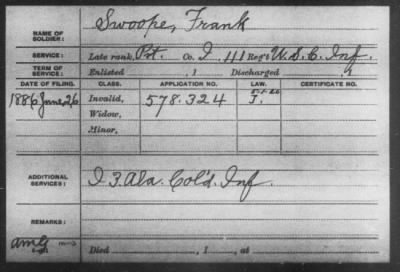 NAME OF SOLDIER: Swoope, Frank
SERVICE: Late rank, Pvt. Co. I, 111 Reg't U.S.C. Inf.
TERM OF SERVICE: Enlisted , 1 Discharged , 1
DATE OF FILING. CLASS. APPLICATION NO. LAW. CERTIFICATE NO.
1886 June 26 Invalid, 578.324 I.
Widow,
Minor,
ADDITIONAL SERVICES: I 3. Ala. Col'd. Inf.
REMARKS:
Died , 1 , at